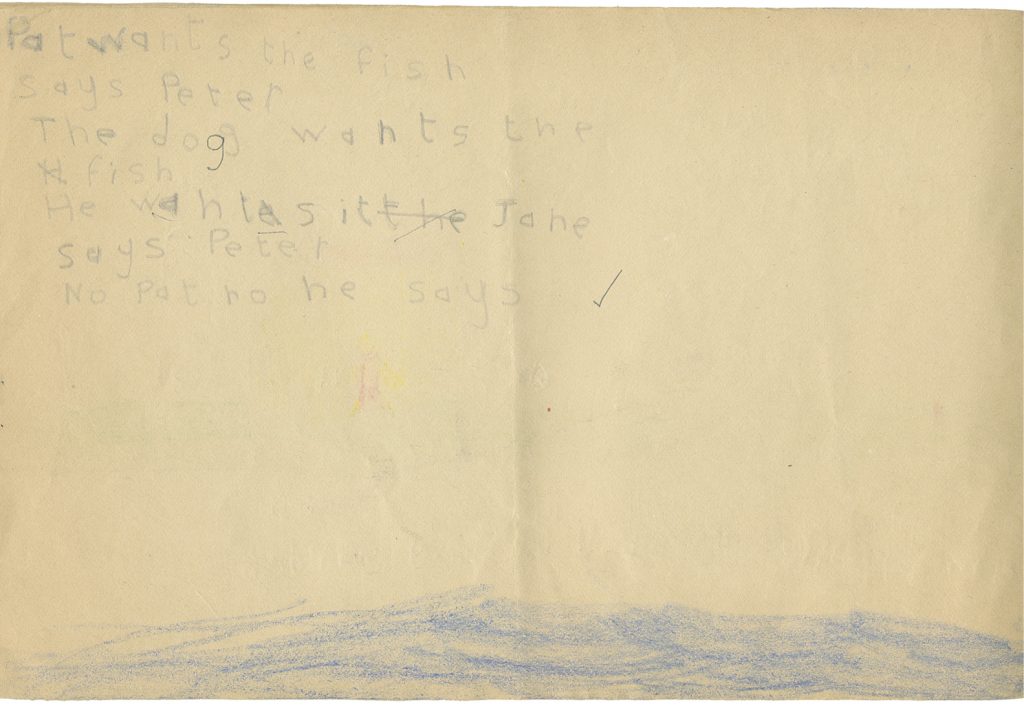 Pat wants the fish
says Peter
The dog wants the
fish
He wants it the Jane
says Peter
No Pat no he says